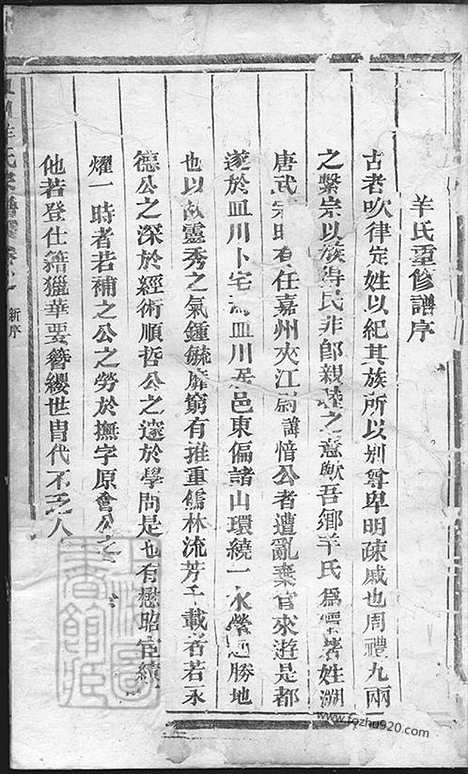 羊氏重修譜序
古者吹律定姓以紀其族所以別尊卑明疎戚也周禮九兩
之繫宗以族得民非即親睦之意歟吾鄉羊氏為著姓溯
唐武宗時有任嘉州夾江尉諱愔公者遭亂棄官來遊是都
遂於皿川卜宅焉皿川居邑東偏諸山環繞一水縈迴勝地
也以故靈秀之氣鍾毓靡窮有推重儒林流芳千載者若永
德公之深於經術順哲公之邃於學問是也有懋昭宦績
耀一時者若補之公之勞於撫字原會公之
他若登仕籍獵華要簪纓世胄代不乏人
新序
www.fozhu920.com